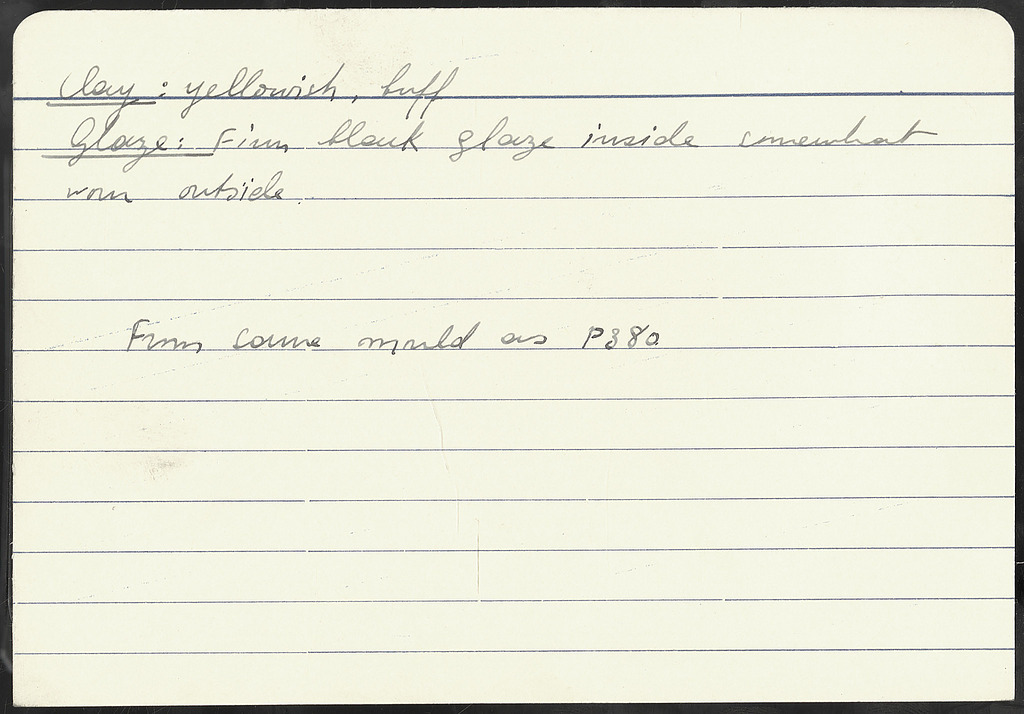 Clay: yellowish, buff
Glaze: Firm black glaze inside somewhat
worn outside.
From same mould as P380